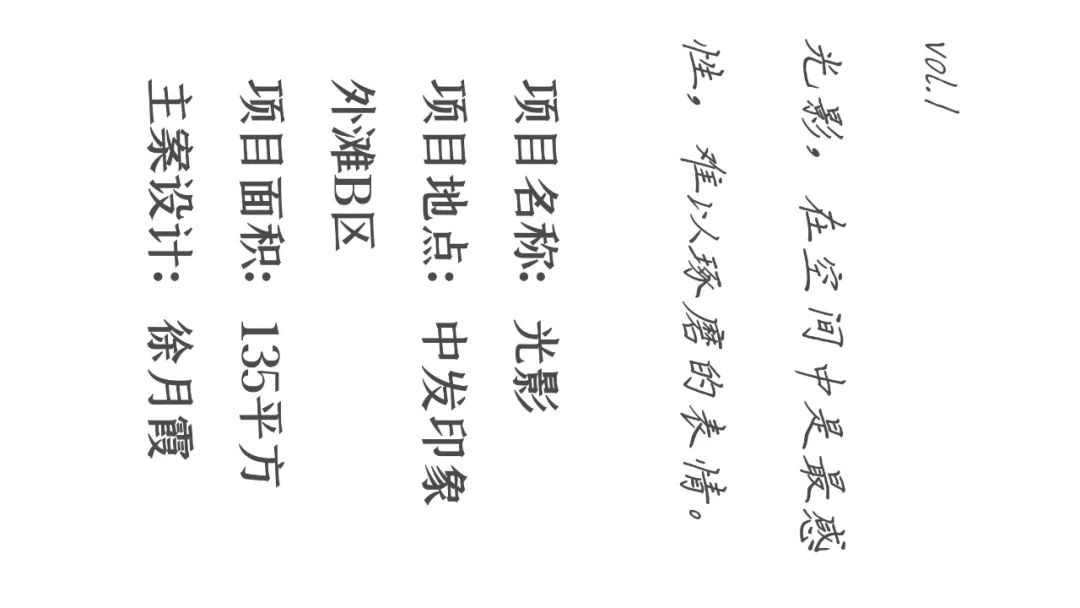 vol.1
光影，在空间中是最感
性，难以琢磨的表情。
项目名称：光影
项目地点：中发印象
外滩B区
项目面积：135平方
主案设计：徐月霞